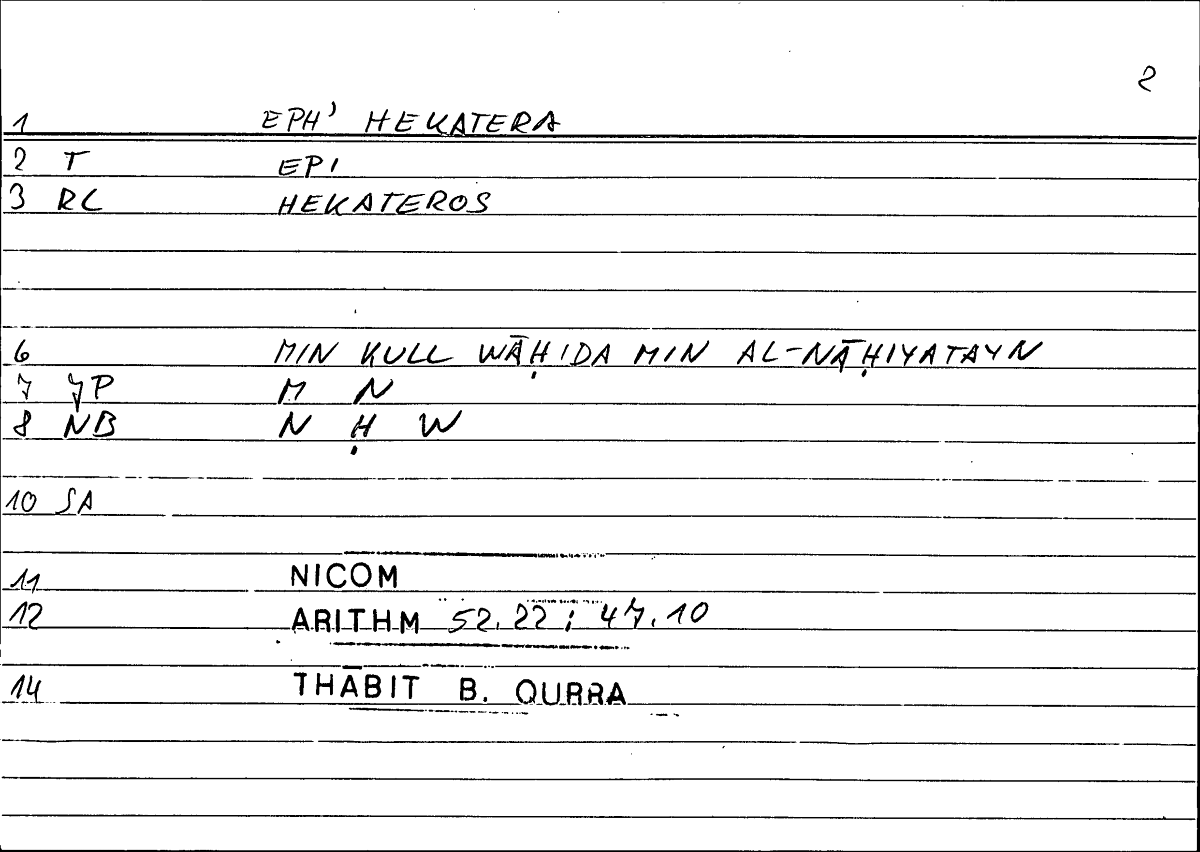 2
1 EPH' HEKATERA
2 T EPI
3 RC HEKATEROS
6 MIN KULL WĀḤIDA MIN AL-NĀḤIYATAYN
7 JP M N
8 NB N Ḥ W
10 SA
11 NICOM
12 ARITHM 52.22; 47.10
14 THĀBIT B. QURRA